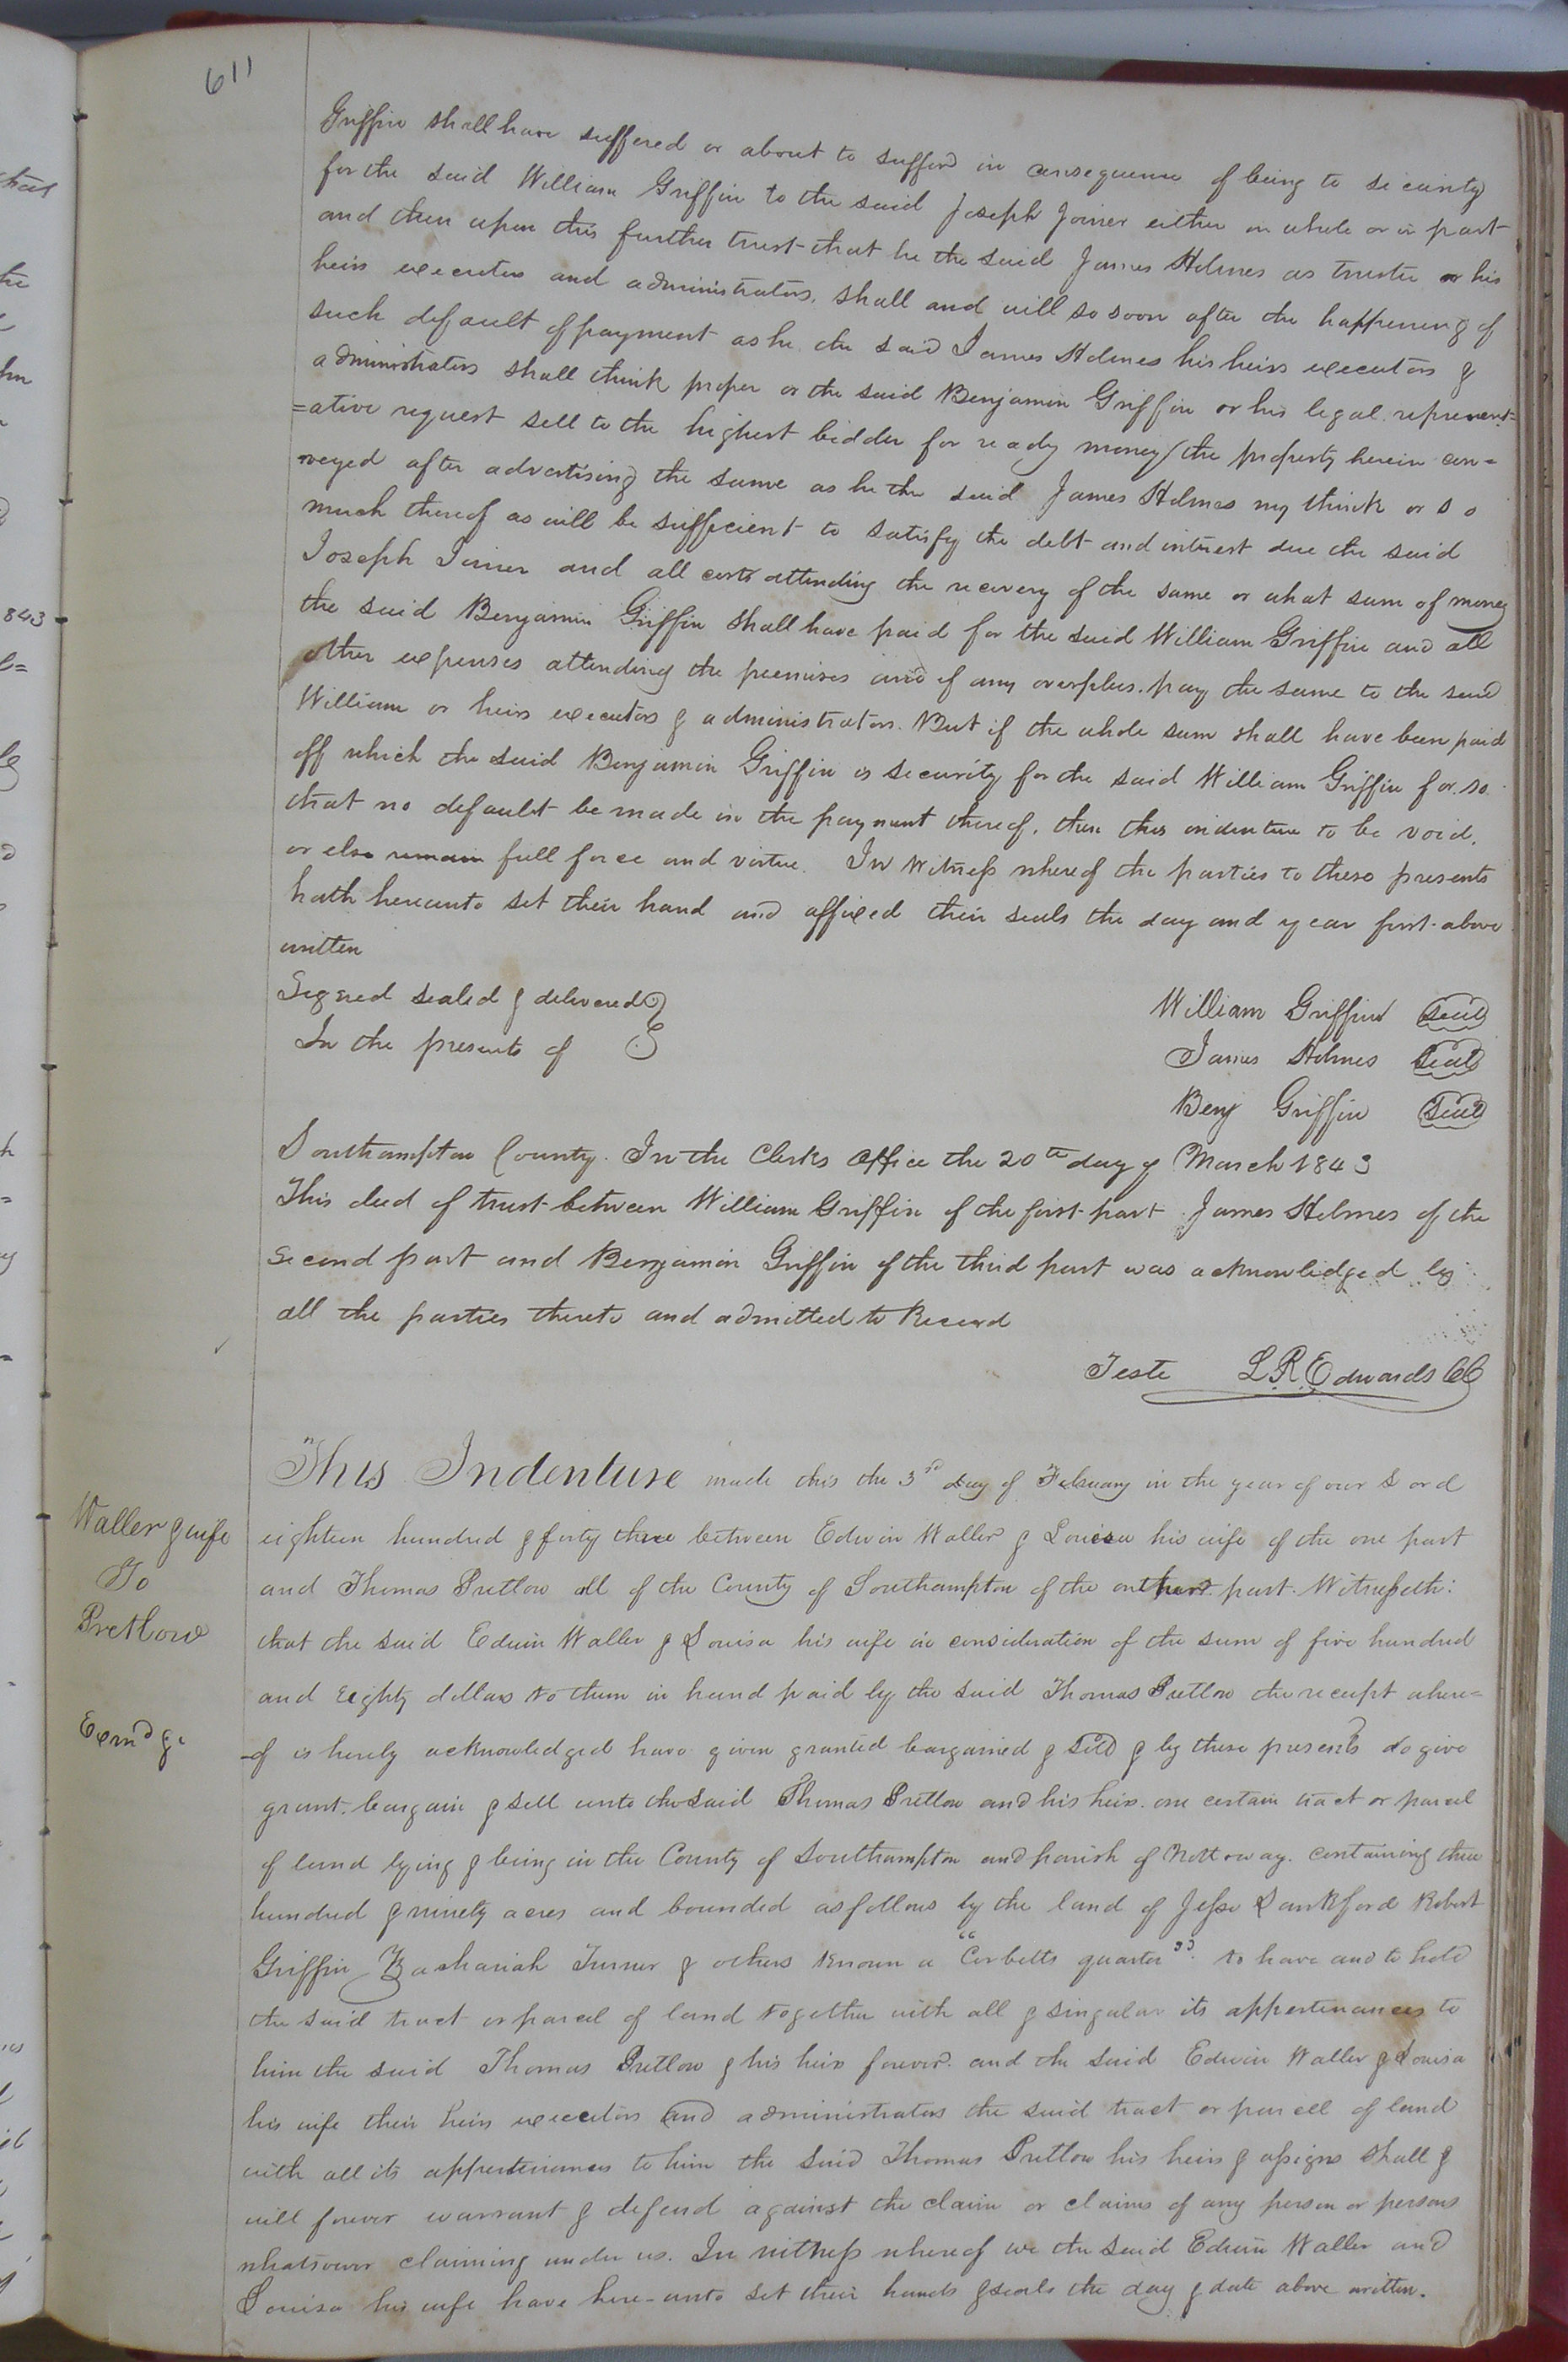 611
Griffin shall have suffered or about to suffer in consequence of being to security
for the said William Griffin to the said Joseph Joiner either in whole or in part
and then upon this further trust that he the said James Holmes as trustee or his
heirs executors and administrators, shall and will so soon after the happening of
such default of payment as he the said James Holmes his heirs executors &
administrators shall think proper or the said Benjamin Griffin or his legal represent=
=ative request sell to the highest bidder for ready money the property herein con=
=veyed after advertising the same as he the said James Holmes my think or so
much thereof as will be sufficient to satisfy the debt and interest due the said
Joseph Joiner and all costs attending the recovery of the same or what sum of money
the said Benjamin Griffin shall have paid for the said William Griffin and all
other expenses attending the premises and if any overplus. pay the same to the said
William or heirs executors & administrators. But if the whole sum shall have been paid
off which the said Benjamin Griffin is security for the said William Griffin for so
that no default be made in the payment thereof, then this indenture to be void,
or else remain full force and virtue. In Witness whereof the parties to these presents
hath hereunto set their hand and affixed their seals the day and year first above
written
Signed sealed & delivered
In the presents of
William Griffin seal
James Holmes seal
Benj Griffin seal
Southampton County. In the Clerks Office the 20th day of March 1843
This deed of trust between William Griffin of the first part James Holmes of the
second part and Benjamin Griffin of the third part was acknowledged by
all the parties thereto and admitted to Record
Teste L R Edwards CC
Waller & wife
To
Pretlow
Exmd &c
This Indenture made this the 3rd day of February in the year of our Lord
eighteen hundred & forty three between Edwin Waller & Louisa his wife of the one part
and Thomas Pretlow all of the County of Southampton of the other part. Witnesseth:
that the said Edwin Waller & Louisa his wife in consideration of the sum of five hundred
and Eighty dollars to them in hand paid by the said Thomas Pretlow the receipt where=
-of is hereby acknowledged have given granted bargained & sold & by these presents do give
grant. bargain & sell unto the said Thomas Pretlow and his heirs. one certain tract or parcel
of land lying & being in the County of Southampton and parish of Nottoway. containing three
hundred & ninety acres and bounded as follows by the land of Jesse Lankford Robert
Griffin Zachariah Turner & others known a "Corbetts quarter" to have and to hold
the said tract or parcel of land together with all & singular its appertenances to
him the said Thomas Pretlow & his heirs forever. and the said Edwin Waller & Louisa
his wife their heirs executors and administrators the said tract or parcell of land
with all its appertenances to him the said Thomas Pretlow his heirs & assigns shall &
will forever warrant & defend against the claim or claims of any person or persons
whatsoever claiming under us. In witness whereof we the said Edwin Waller and
Louisa his wife have here-unto set their hands & seals the day & date above written.